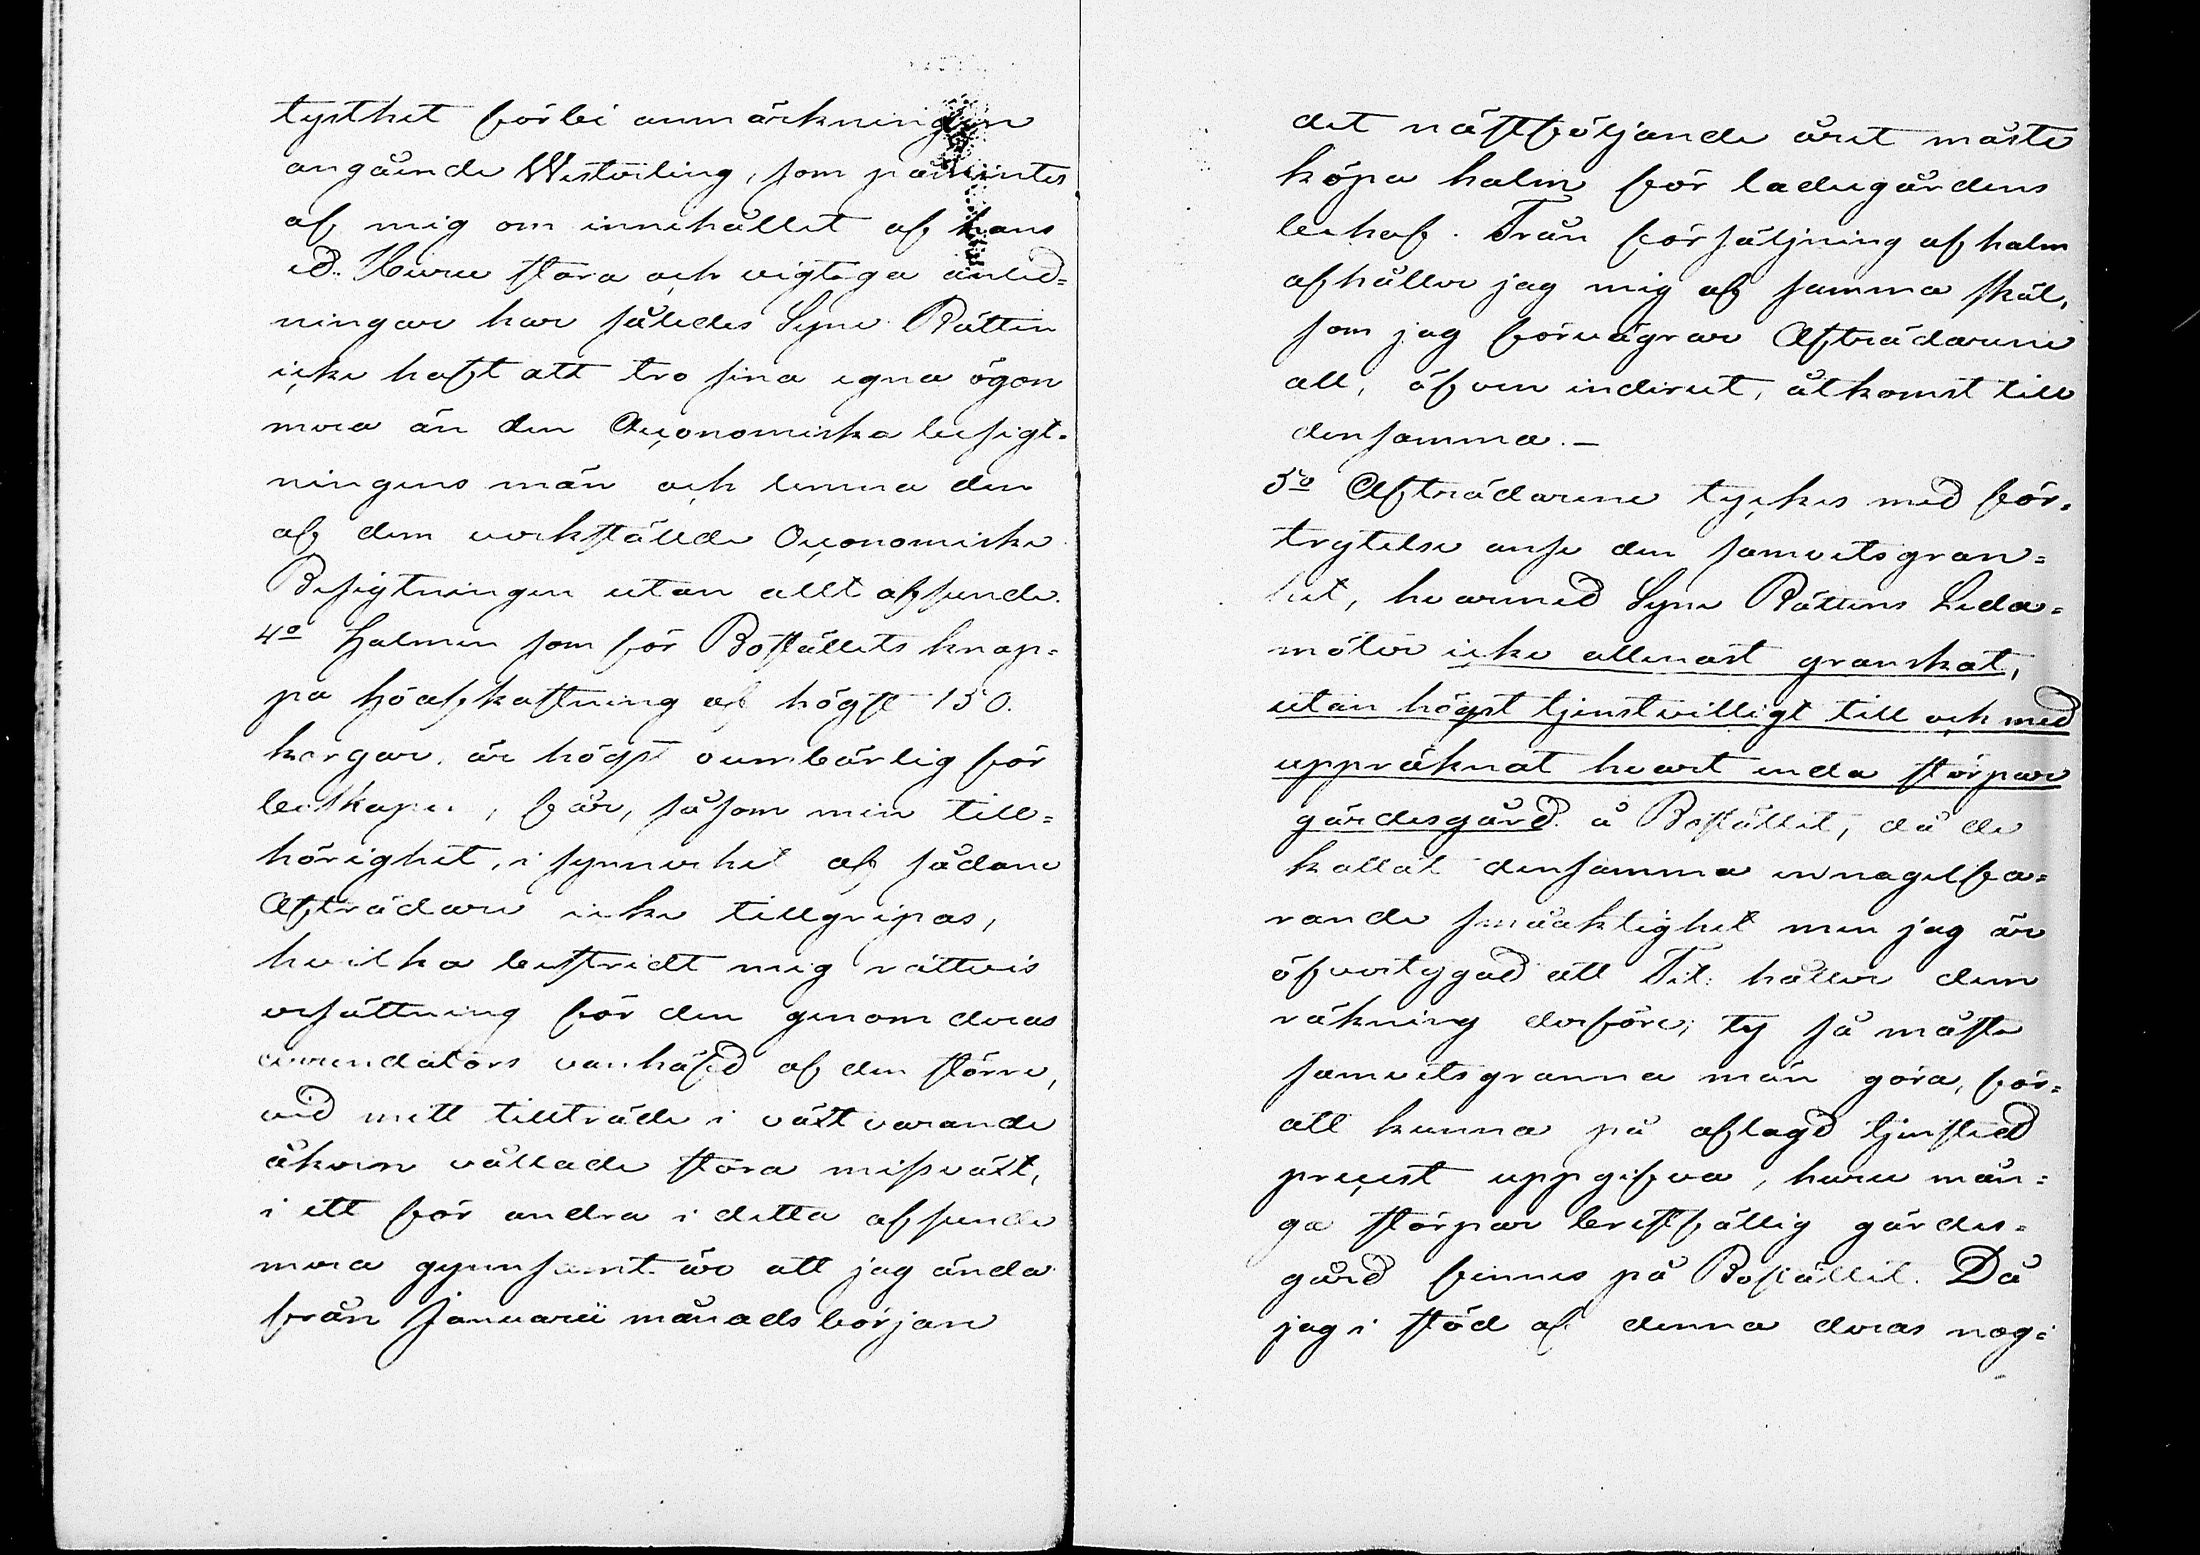 tysthet förbi anmärkningen
angående Westerling, som påmintes
af mig om innehållet af hans
ed. Huru stora och vigtiga anled=
ningar har således Syne Rätten
icke haft att tro sina egna ögon
mera än den Oeconomiska besigt=
ningens män och lemna den
af dem verkställde Oeconomiske
Besigtningen utan allt afseende.
4o Halmen som för Boställets knap=
pa höafkastning af högst 150.
kärgar. är högst oumbärlig för
boskapen, får, såsom min till=
hörighet, i synnerhet af sådane
Afträdare icke tillgripas,
hvilka bestridt mig rättvis
ersättning för den genom deras
arrendators vanhäfd af den större,
vid mitt tillträde i växt varande
åkern vållade stora missväxt,
i ett för andra i detta afseende
mera gynnsamt år att jag ända
från Januarii månads början
det nästföljande året måste
köpa halm för ladugårdens
behof. Från försäljning af halm
afhåller jag mig af samma skäl,
som jag förvägrar Afträdarene
all, äfven indirect, åtkomst till
densamma.—
5o Afträdarene tyckes med för=
trytelse anse den samvetsgran=
het, hvarmed Syne Rättens Leda=
möter icke allenast granskat,
utan högst tjenstvilligt till och med
uppräknat hvart enda störpar
gärdesgård å Bostället, då de
kallat densamma en nagelfa=
rande småaktighet men jag är
öfvertygad att Tit: håller dem
räkning derföre; ty så måste
samvetsgranna män göra, för=
att kunna på aflagd tjensted
precist uppgifva, huru mån=
ga störpar bristfällig gärdes=
gård finnes på Bostället. Då
jag i stöd af denna deras nog=